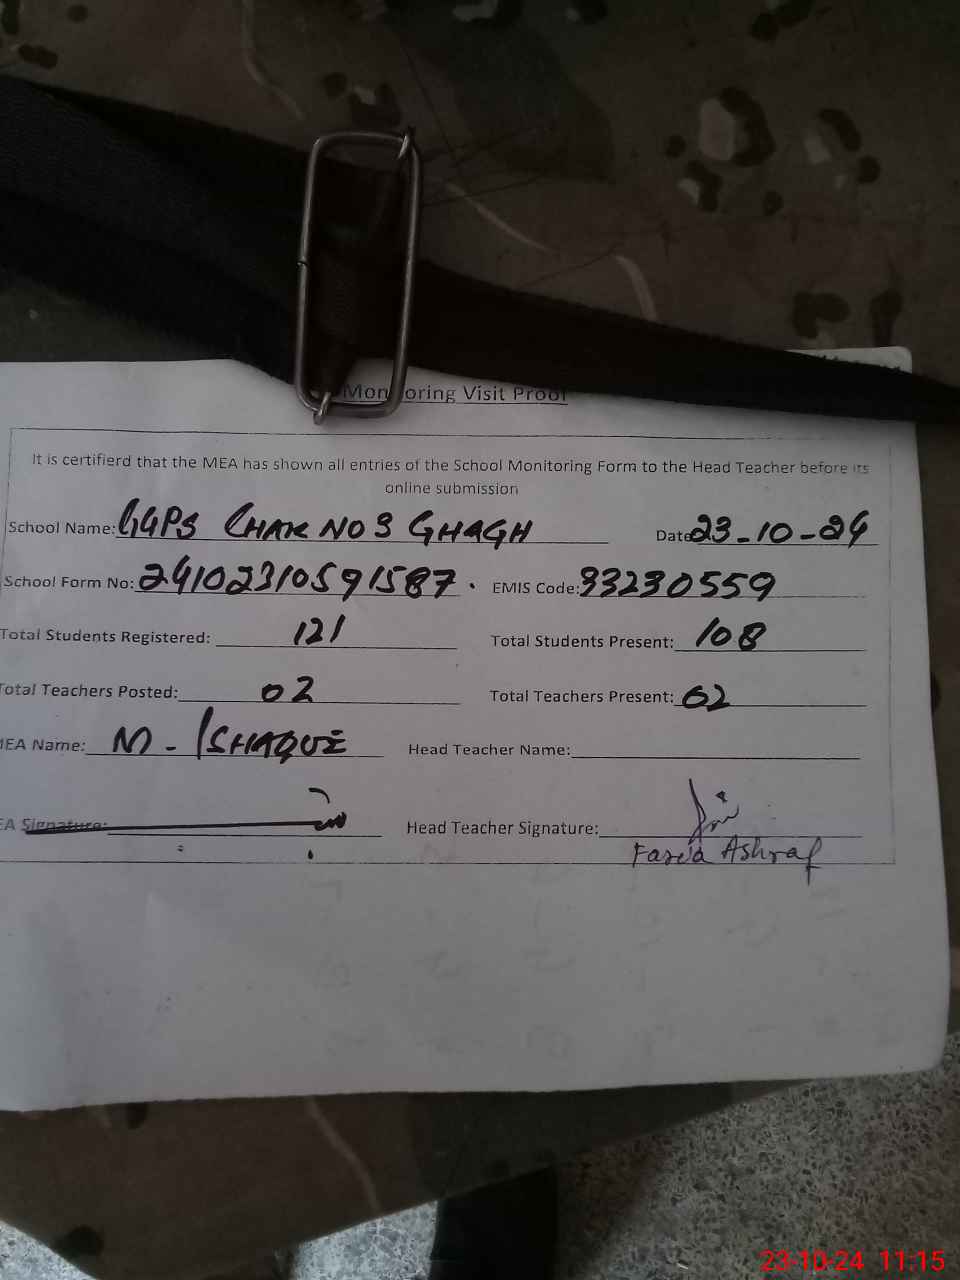 Monitoring Visit Proof
It is certifierd that the MEA has shown all entries of the School Monitoring Form to the Head Teacher before its
online submission
School Name: GGPS CHAK NO 3 GHAGH Date 23-10-24
School Form No: 24102310591587. EMIS Code: 33230559
Total Students Registered: 121 Total Students Present: 108
Total Teachers Posted: 02 Total Teachers Present: 02
MEA Name: M-ISHAQUE Head Teacher Name:
EA Signature: Head Teacher Signature:
Fazeia Ashraf
23-10-24 11:15